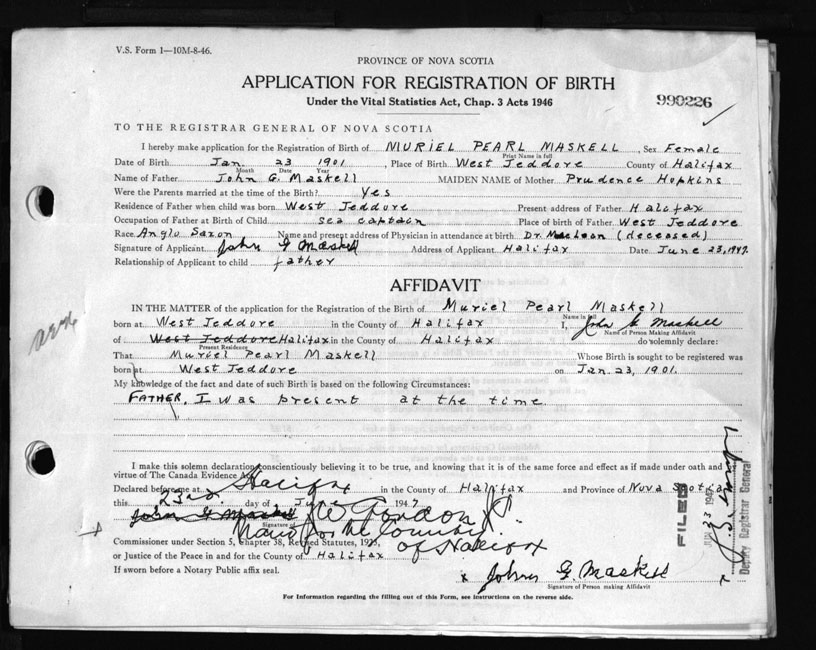 V.S. Form 1—10M-8-46.
PROVINCE OF NOVA SCOTIA
APPLICATION FOR REGISTRATION OF BIRTH
Under the Vital Statistics Act, Chap. 3 Acts 1946
990226
TO THE REGISTRAR GENERAL OF NOVA SCOTIA
I hereby make application for the Registration of Birth of MURIEL PEARL MASKELL, Sex Female
Print Name in full
Date of Birth Jan. 23 1901, Place of Birth West Jeddore County of Halifax
Month Date Year
Name of Father John G. Maskell MAIDEN NAME of Mother Prudence Hopkins
Were the Parents married at the time of the Birth? Yes
Residence of Father when child was born West Jeddore Present address of Father Halifax
Occupation of Father at Birth of Child sea captain Place of birth of Father West Jeddore
Race Anglo Saxon Name and present address of Physician in attendance at birth Dr. MacLean (deceased)
Signature of Applicant John G Maskell Address of Applicant Halifax Date June 23, 1947.
Relationship of Applicant to child father
AFFIDAVIT
IN THE MATTER of the application for the Registration of the Birth of Muriel Pearl Maskell
Name in full
born at West Jeddore in the County of Halifax I, John G Maskell
Name of Person Making Affidavit
of West Jeddore Halifax in the County of Halifax do solemnly declare:
Present Residence
That Muriel Pearl Maskell Whose Birth is sought to be registered was
born at West Jeddore on Jan. 23, 1901.
My knowledge of the fact and date of such Birth is based on the following Circumstances:
FATHER, I was present at the time
I make this solemn declaration conscientiously believing it to be true, and knowing that it is of the same force and effect as if made under oath and
virtue of The Canada Evidence Act.
Declared before me at Halifax in the County of Halifax and Province of Nova Scotia
this 23rd day of June 1947
John G Maskell W Gordon JP
Signature of
for the County
of Halifax
Commissioner under Section 5, Chapter 38, Revised Statutes, 1923,
or Justice of the Peace in and for the County of Halifax
If sworn before a Notary Public affix seal.
x John G. Maskell
Signature of Person making Affidavit
For Information regarding the filling out of this Form, see instructions on the reverse side.
FILED
JUN 23 1947
Deputy Registrar General